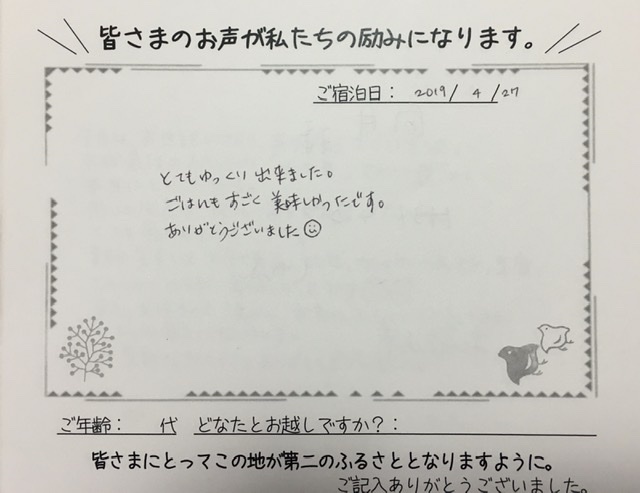 皆さまのお声が私たちの励みになります。
ご宿泊日： 2019/ 4 /27
とてもゆっくり出来ました。
ごはんもすごく美味しかったです。
ありがとうございました☺
ご年齢： 代 どなたとお越しですか？：
皆さまにとってこの地が第二のふるさととなりますように。
ご記入ありがとうございました。